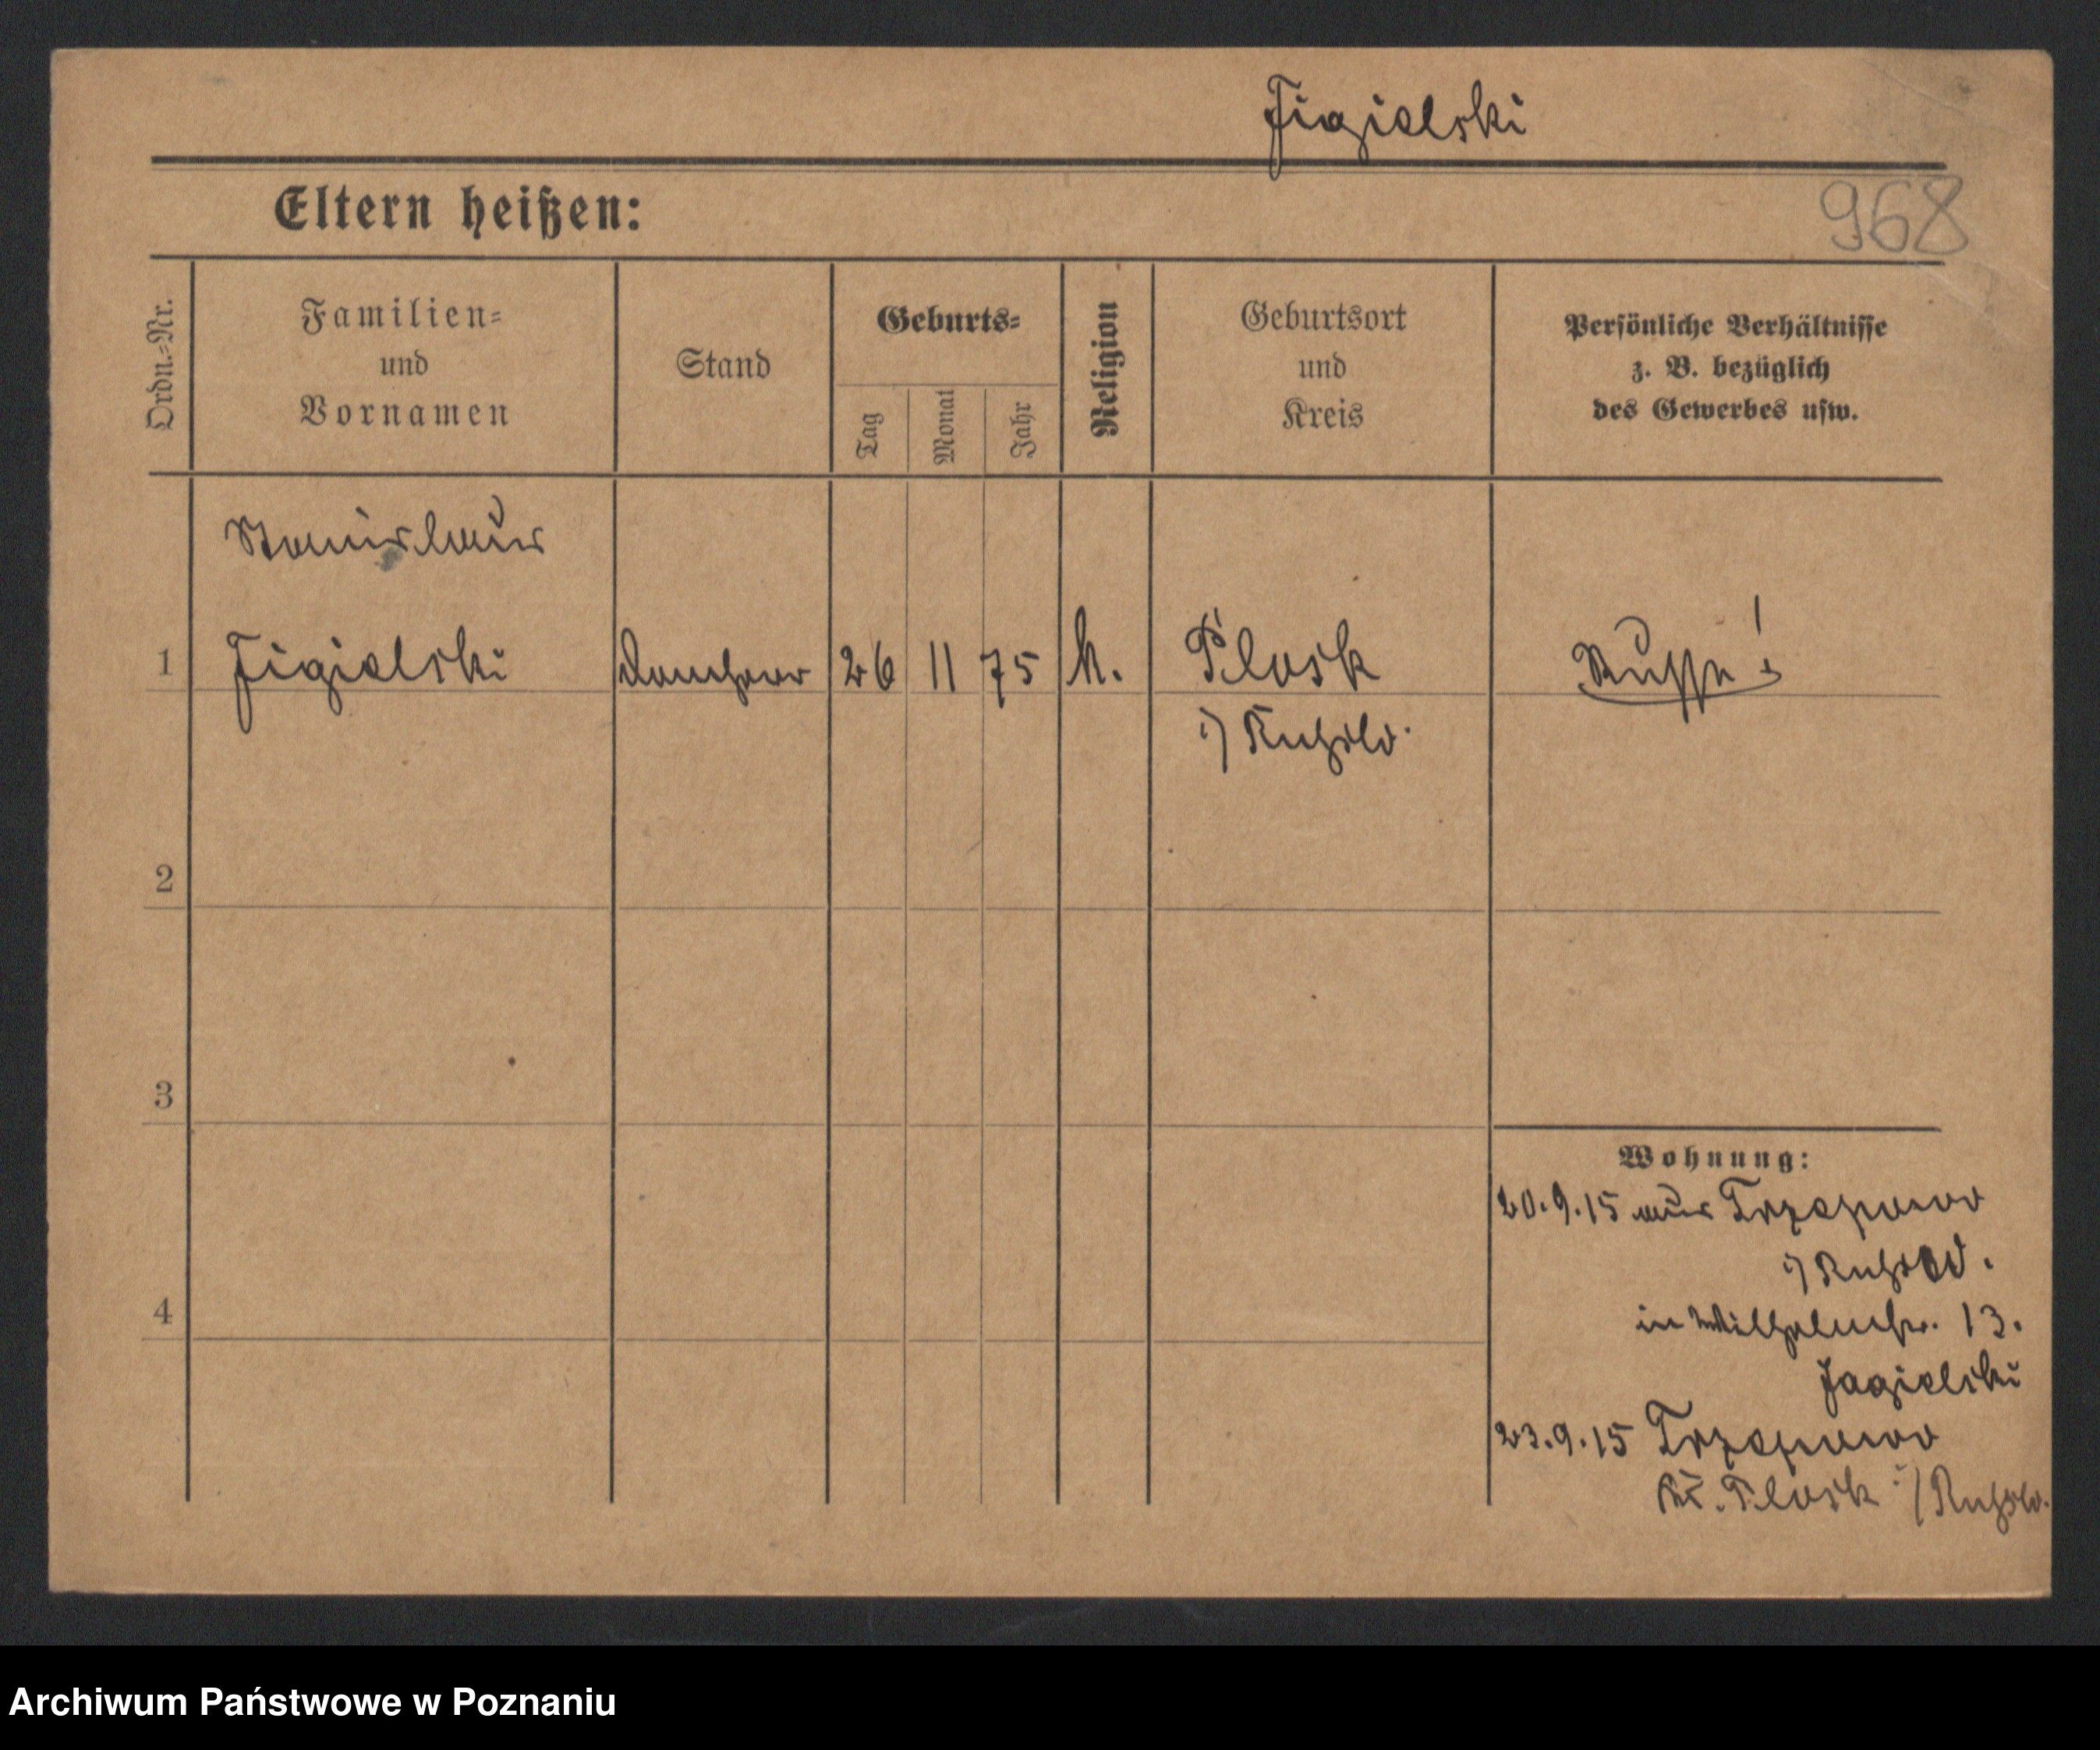 Figielski
Eltern heißen:
968
Ordn.=Nr.
Familien=
und
Vornamen
Stand
Geburts=
Tag
Monat
Jahr
Religion
Geburtsort
und
Kreis
Persönliche Verhältnisse
z. B. bezüglich
des Gewerbes usw.
Stanislaus
1 Figielski 26 11 75 k. Plock Russe!
i/ Rußld.
2
3
Wohnung:
20.9.15 aus
i/ Rußld.
4
in Wilhelmstr. 13.
Jagielski
23.9.15
Kr. Plock i/ Rußld.
Archiwum Państwowe w Poznaniu